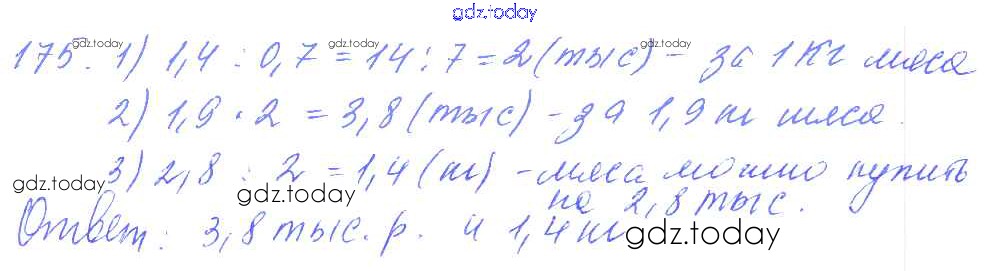 gdz.today
175. 1) 1,4 : 0,7 = 14 : 7 = 2 (тыс) - за 1 кг мяса
gdz.today gdz.today gdz.today
2) 1,9 · 2 = 3,8 (тыс) - за 1,9 кг мяса.
3) 2,8 : 2 = 1,4 (кг) - мяса можно купить
gdz.today gdz.today
на 2,8 тыс.
Ответ: 3,8 тыс. р. и 1,4 кг
gdz.today